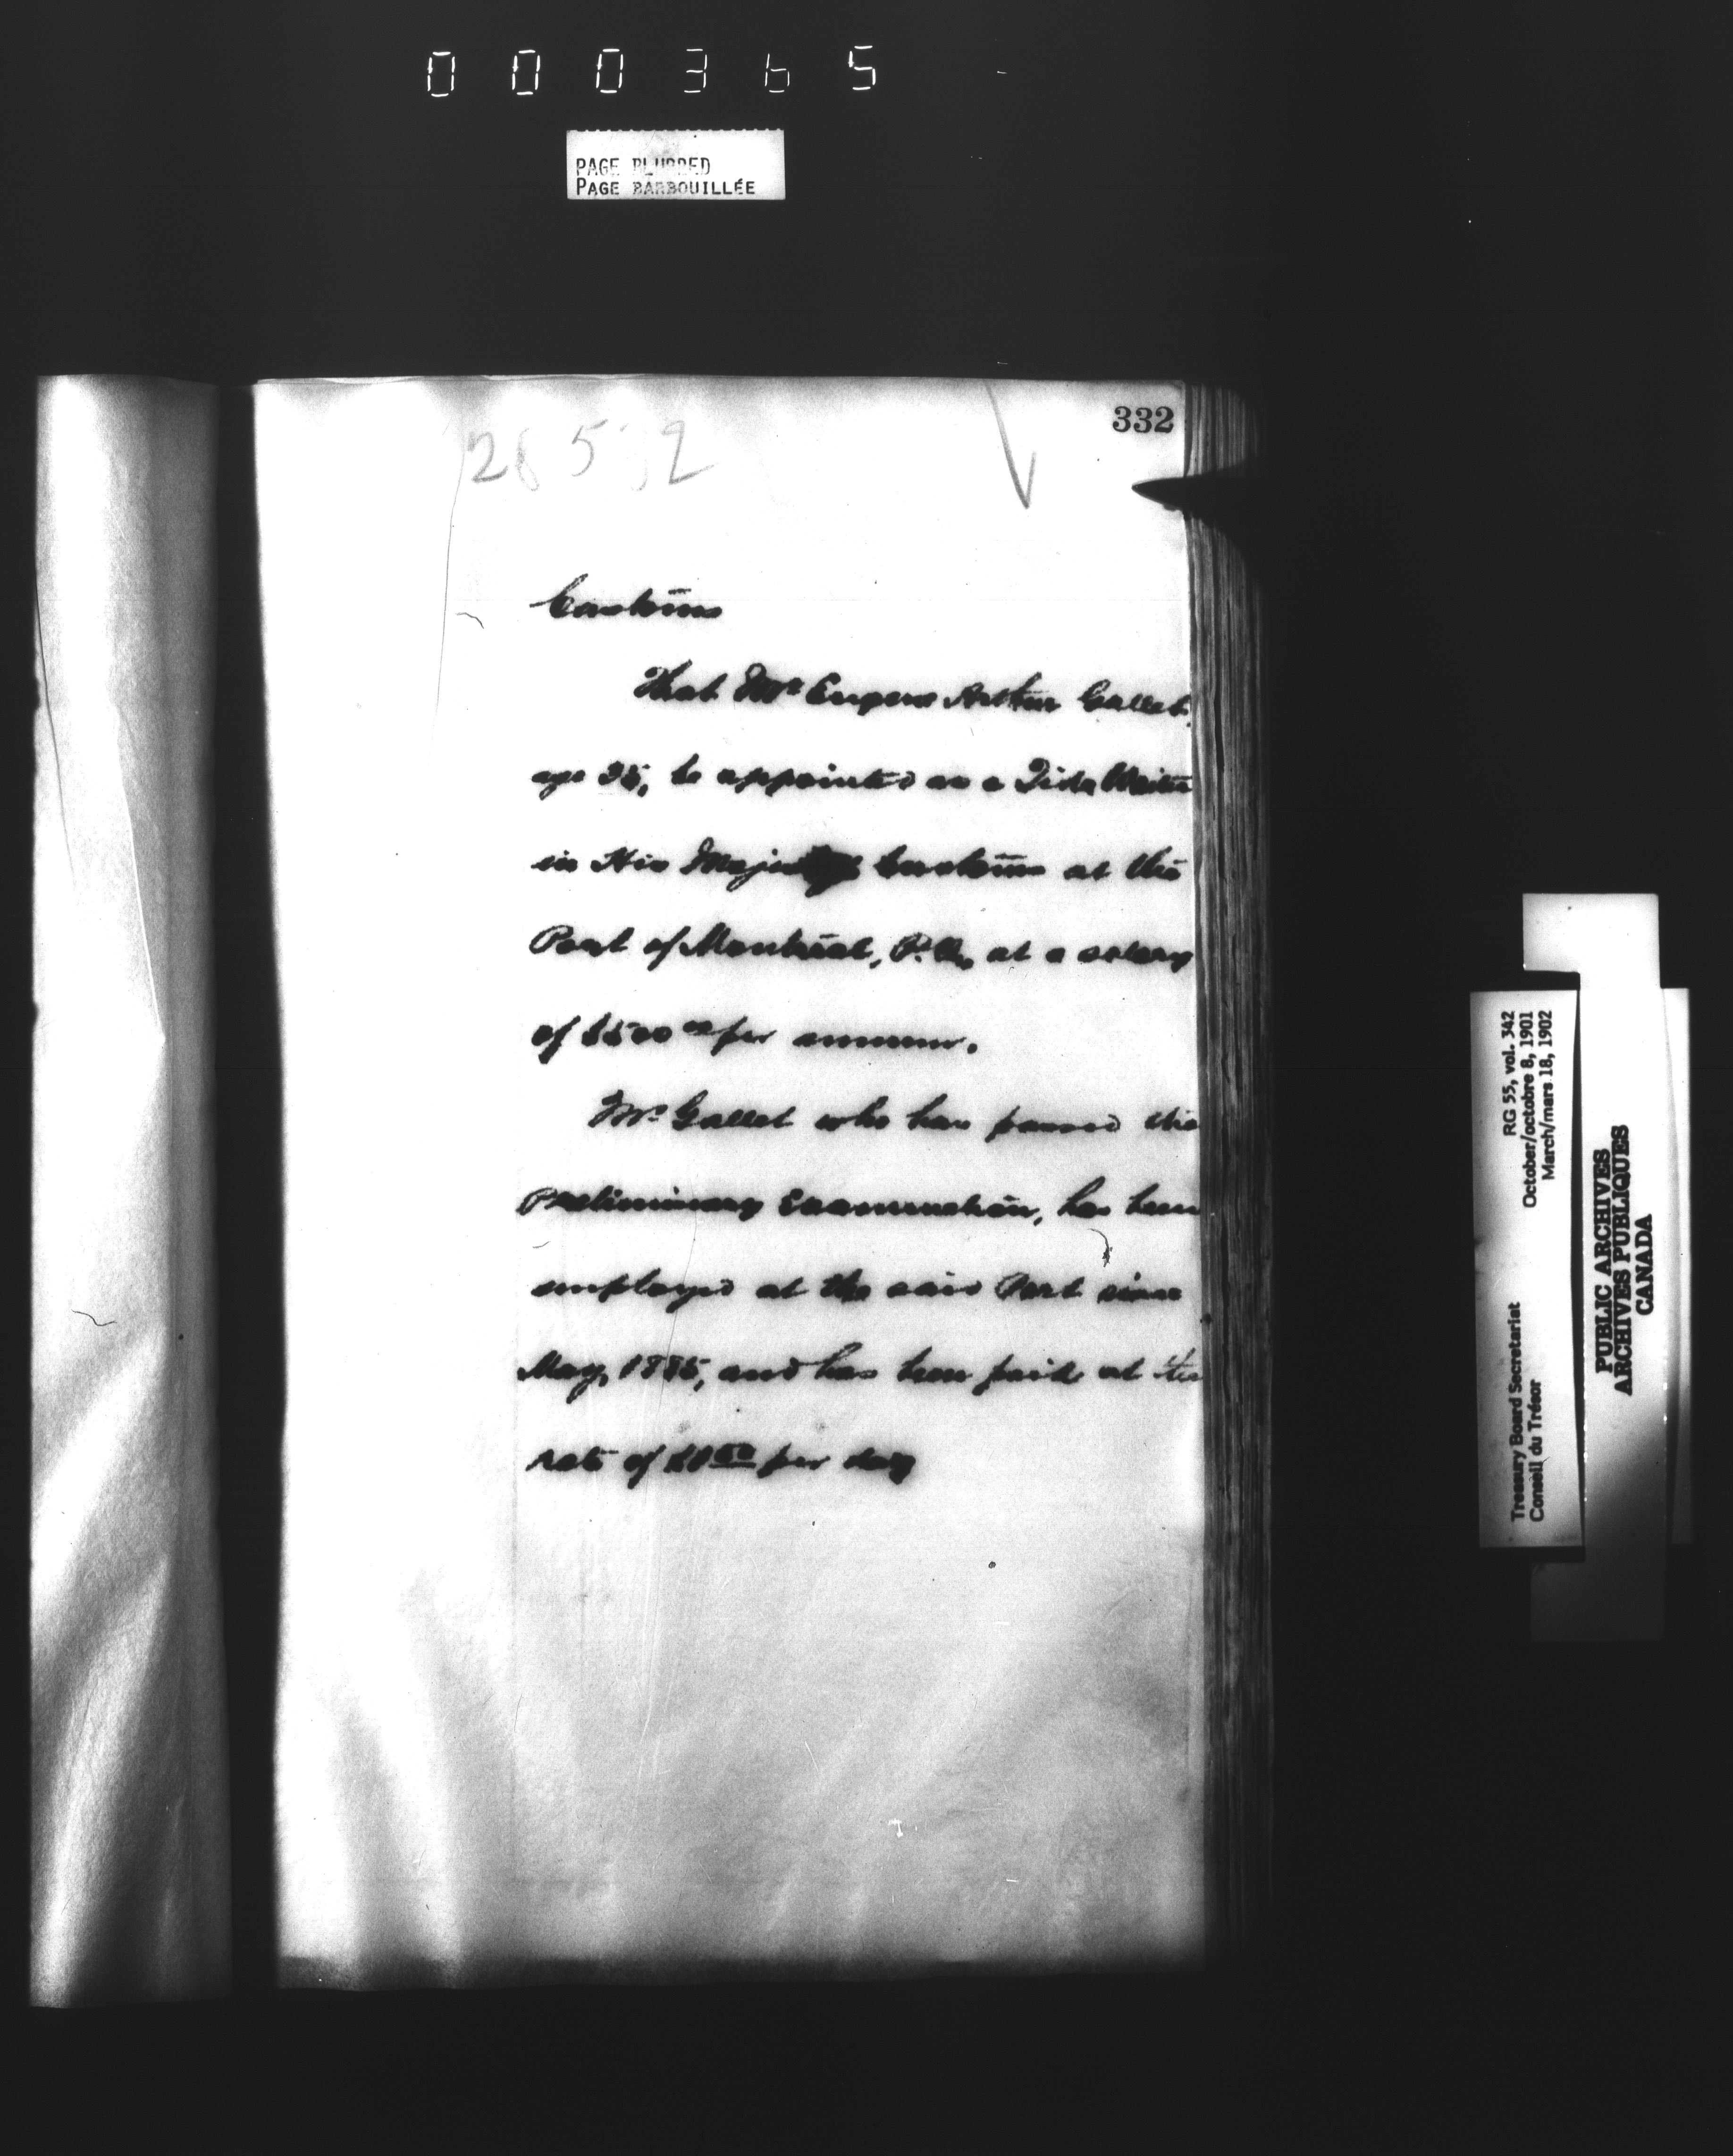 000365
PAGE BLURRED
PAGE BARBOUILLÉE
332
Customs
That Mr Eugene Arthur Gallet,
age 35, be appointed as a Tide Waiter
in His Majesty's Customs at the
Port of Montreal, P.Q., at a salary
of $500 00 per annum.
Mr Gallet who has passed the
Preliminary Examination, has been
employed at the said Port since
May, 1885, and has been paid at the
rate of $1 50 per day
RG 55, vol. 342
October/octobre 8, 1901
March/mars 18, 1902
Treasury Board Secretariat
Conseil du Trésor
PUBLIC ARCHIVES
ARCHIVES PUBLIQUES
CANADA